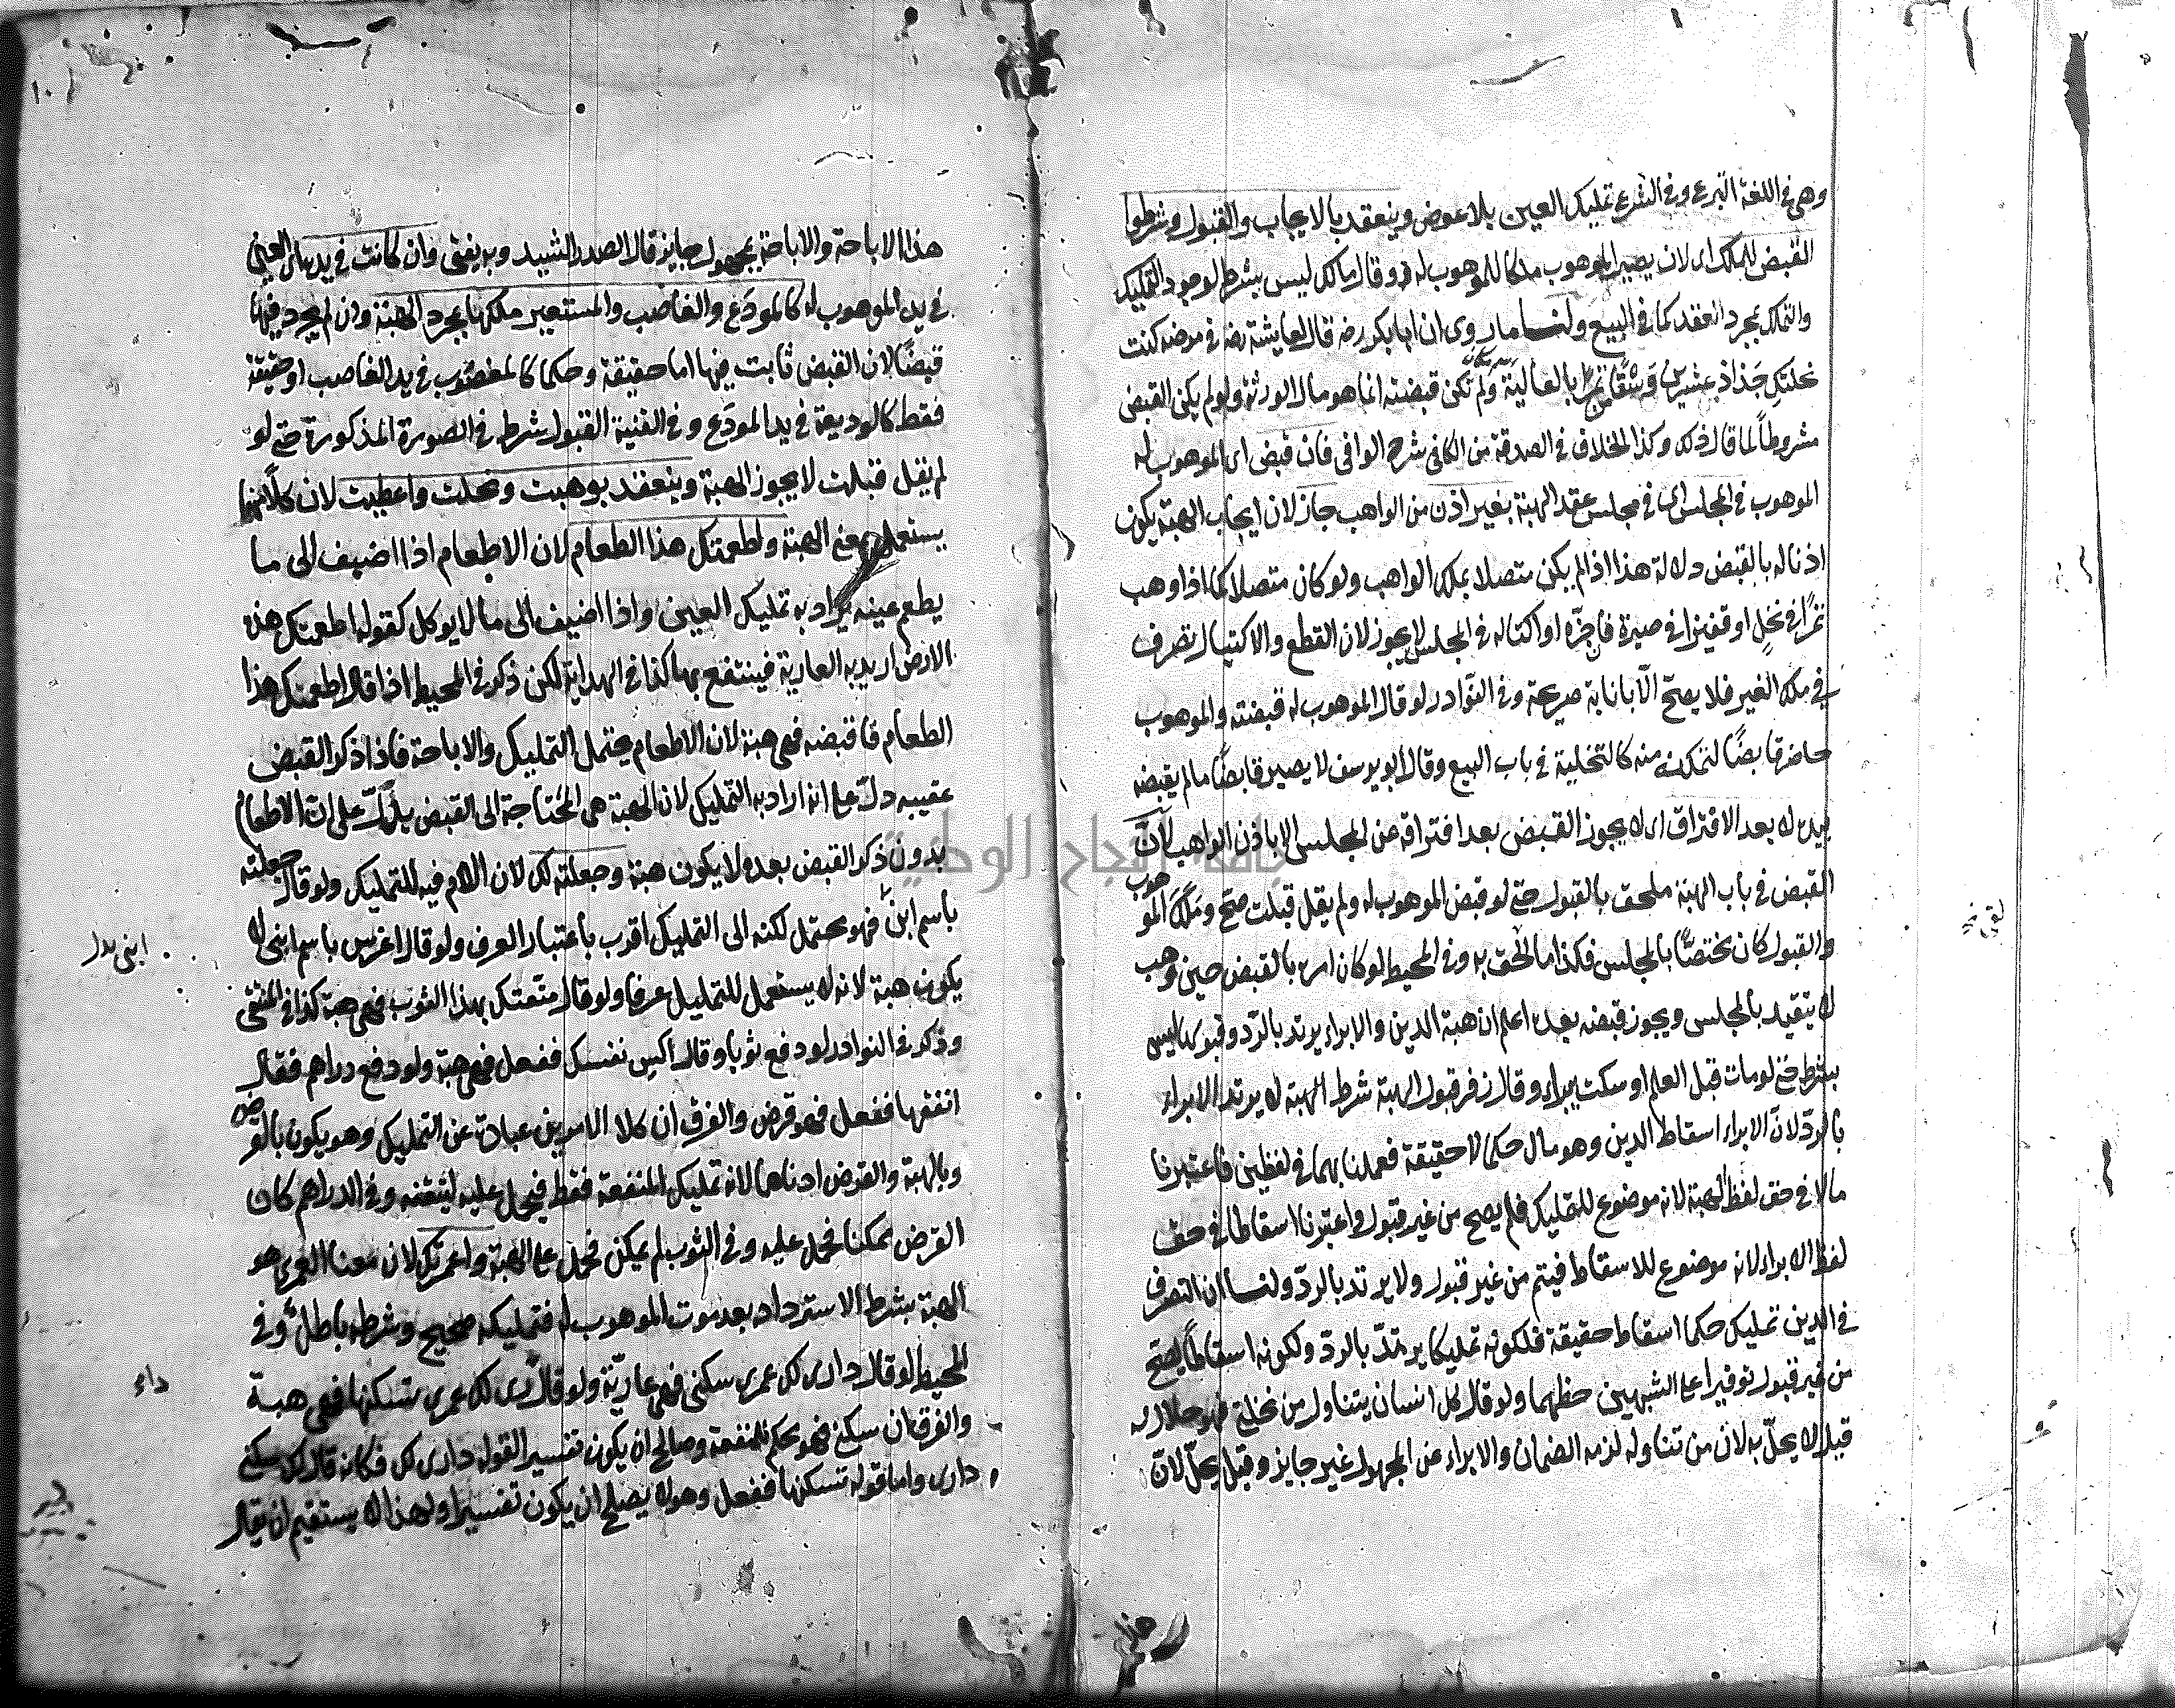 وهى فى اللغة التبرع وفى الشرع تمليك العين بلا عوض وينعقد بالايجاب والقبول وشرطوا
القبض للملك اى لان يصير الموهوب ملكا للموهوب له وقال مالك ليس بشرط لوجود التمليك
والتملك بمجرد العقد كما فى البيع ولنا ما روى ان ابا بكر رضه قال لعايشة رضه فى مرضه كنت
نحلتك جذاذ عشرين وسقا من تمرا بالعالية ولم تكن قبضته انما هو مال الورثة ولو لم يكن القبض
مشروطاً لما قال ذلك وكذا الخلاف فى الصدقة من الكافى شرح الوافى فان قبض اى الموهوب له
الموهوب فى المجلس اى فى مجلس عقد الهبة بغير اذن من الواهب جاز لان ايجاب الهبة يكون
اذنا له بالقبض دلالة هذا اذا لم يكن متصلا بملك الواهب ولو كان متصلا كما اذا وهب
تمرًا فى نخل او قفيزا فى صبرة فاجزّه او اكتاله فى المجلس لا يجوز لان القطع والاكتيال تصرف
فى ملك الغير فلا يصح الّا بانابة صريحة وفى النوادر لو قال الموهوب له قبضته والموهوب
حاضر قابضًا لتمكنه منه كالتخلية فى باب البيع وقال ابو يوسف لا يصير قابضًا ما لم يقبضه
بيده لا بعد الافتراق اى لا يجوز القبض بعد افتراقه عن المجلس الا باذن الواهب لانّ
القبض فى باب الهبة ملحق بالقبول حتى لو قبض الموهوب له ولم يقل قبلت صح وملك الموهوب
والقبول كان مختصًا بالمجلس فكذا ما الحق به وفى المحيط لو كان امره بالقبض حين وهب
لا يتقيد بالمجلس ويجوز قبضه بعده اعلم ان هبة الدين والابراء يرتد بالرد وقبولها ليس
بشرط حتى لو مات قبل العلم او سكت يبراء وقال زفر قبول الهبة شرط الهبة لا يرتد الابراء
بالردّ لانّ الابراء اسقاط الدين وهو مال حكما لا حقيقة فعملنا بهما فى لفظين فاعتبرنا
مالا فى حق لفظ الهبة لانه موضوع للتمليك فلم يصح من غير قبول واعتبرنا اسقاطا فى حق
لفظ الابراء لانه موضوع للاسقاط فيتم من غير قبول ولا يرتد بالردّ ولنا ان التصرف
فى الدين تمليك حكما اسقاط حقيقة فلكونه تمليكا يرتدّ بالردّ ولكونه اسقاطاً يصح
من غير قبول توفيرا على الشبهين حظهما ولو قال كل انسان يتناول من نخلى فهو حلال له
قيل لا يحلّ به لان من تناوله لزمه الضمان والابراء عن المجهول غير جايز وقيل يحلّ لانّ
هذا الاباحة والاباحة بمجهول جايز قال الصدر الشهيد وبه يفتى وان كانت فى يده اى العين
فى يد الموهوب له كالمودَع والغاصب والمستعير ملكها بمجرد الهبة وان لم يجدد فيها
قبضًا لان القبض ثابت فيها اما حقيقة وحكما كالمغصوب فى يد الغاصب او حقيقة
فقط كالوديعة فى يد المودَع وفى القنية القبول شرط فى الصورة المذكورة حتى لو
لم يقل قبلت لا يجوز الهبة وينعقد بوهبت ونحلت واعطيت لان كلًّا منها
يستعمل بمعنى الهبة واطعمتك هذا الطعام لان الاطعام اذا اضيف الى ما
يطعم عينه يراد به تمليك العين واذا اضيف الى ما لا يوكل كقوله اطعمتك هذه
الارض اريد به العارية فينتفع بها كذا فى الهداية لكن ذكر فى المحيط اذا قال اطعمتك هذا
الطعام فاقبضه فهى هبة لان الاطعام يحتمل التمليك والاباحة فاذا ذكر القبض
عقيبه دلّ على انه اراد به التمليك لان الهبة هى المحتاجة الى القبض يدلّ على ان الاطعام
بدون ذكر القبض بعده لا يكون هبة وجعلته لك لان اللام فيه للتمليك ولو قال جعلته
باسم ابن فهو محتمل لكنه الى التمليك اقرب باعتبار العرف ولو قال اغرس باسم ابنى لا
يكون هبة لانه لا يستعمل للتمليك عرفا ولو قال متعتك بهذا الثوب فهى هبة كذا فى المنتقى
وذكر فى النوادر لو دفع ثوبا وقال اكس نفسك ففعل فهى هبة ولو دفع دراهم فقال
انفقها ففعل فهو قرض والفرق ان كلا الامرين عبارة عن التمليك وهو يكون بالقرض
وبالهبة والقرض ادناهما لانه تمليك المنفعة فقط فيحمل عليه ليتقنه وفى الدراهم كان
القرض ممكنا فحمل عليه وفى الثوب لم يمكن فحمل على الهبة واعمرتك لان معنا العمرى هو
الهبة بشرط الاسترداد بعد موت الموهوب له فتمليكه صحيح وشرطه باطل وفى
المحيط لو قال دارى لك عمرى سكنى فهى عارية ولو قال دى لك عمرى تسكنها فهى هبة
والفرق ان سكنى فهو محكم للمنفعة وصالح ان يكون تفسير القوله دارى لك فكانه قال لك سكنى
دارى واما قوله تسكنها ففعل وهو لا يصلح ان يكون تفسيرا ولهذا لا يستقيم ان يقال
ابنى بدل
داء